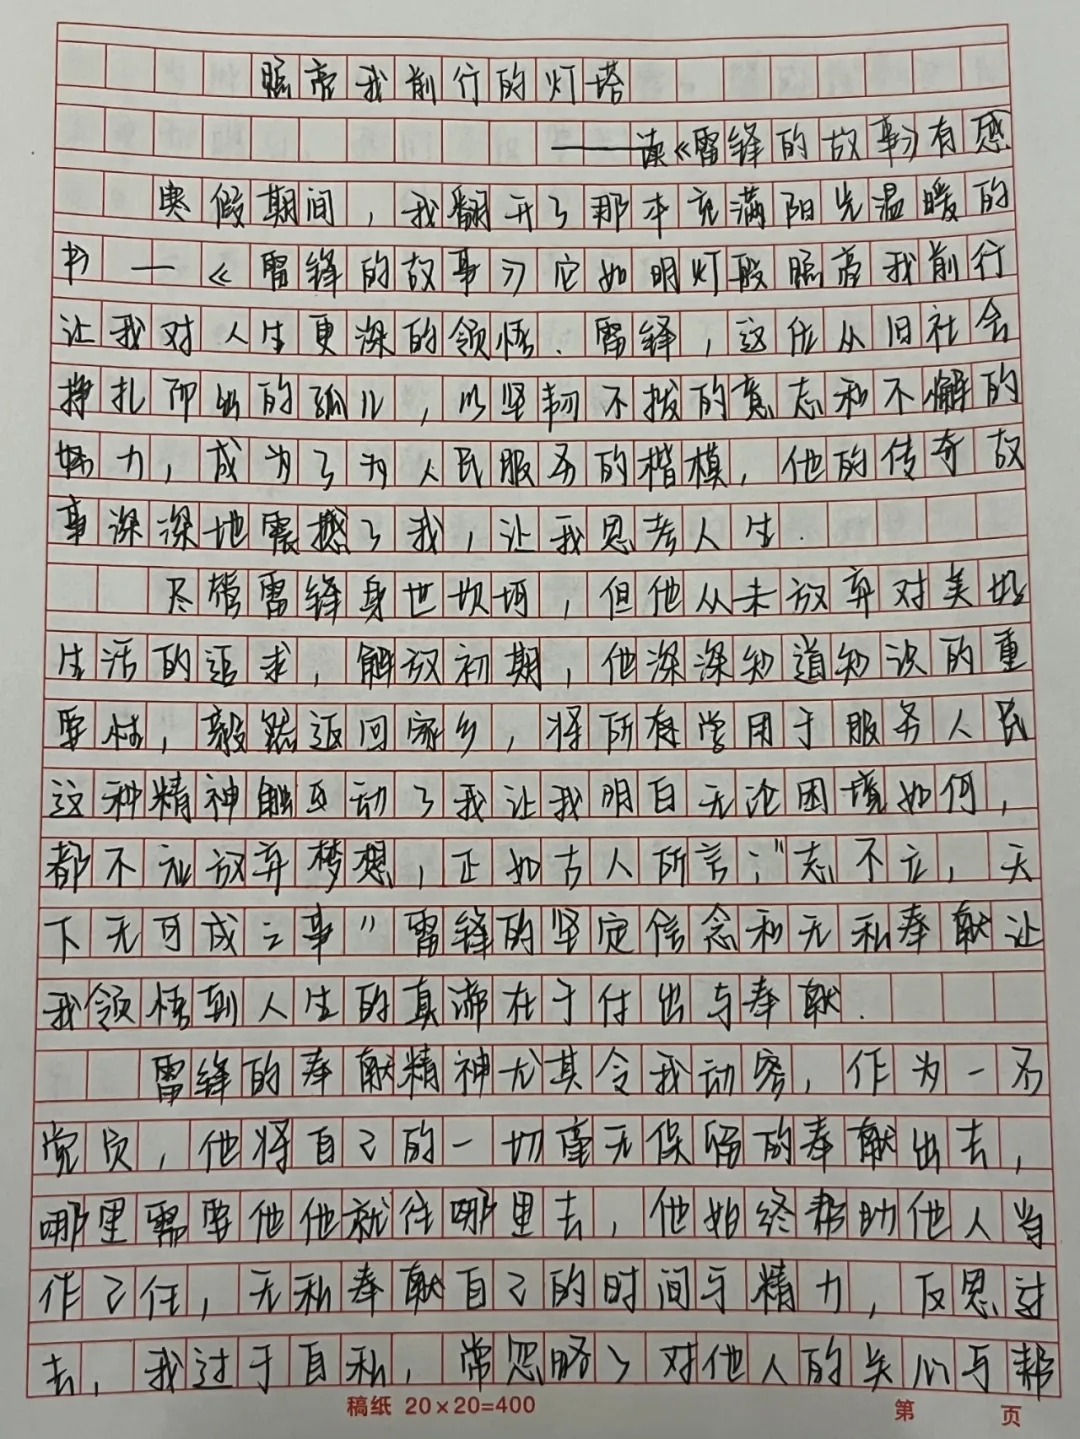 照亮我前行的灯塔
——读《雷锋的故事》有感
寒假期间，我翻开了那本充满阳光温暖的
书—《雷锋的故事》它如明灯般照亮我前行
让我对人生更深的领悟.雷锋，这位从旧社会
挣扎而出的孤儿，以坚韧不拔的意志和不懈的
努力，成为了为人民服务的楷模，他的传奇故
事深深地震撼了我，让我思考人生.
尽管雷锋身世坎坷，但他从未放弃对美好
生活的追求，解放初期，他深深知道知识的重
要性，毅然返回家乡，将所有学用于服务人民
这种精神触动了我让我明白无论困境如何，
都不应放弃梦想，正如古人所言；“志不立，天
下无可成之事”雷锋的坚定信念和无私奉献让
我领悟到人生的真谛在于付出与奉献.
雷锋的奉献精神尤其令我动容，作为一名
党员，他将自己的一切毫无保留的奉献出去，
哪里需要他他就往哪里去，他始终帮助他人当
作己任，无私奉献自己的时间与精力，反思过
去，我过于自私，常忽略了对他人的关心与帮
稿纸 20×20=400 第 页